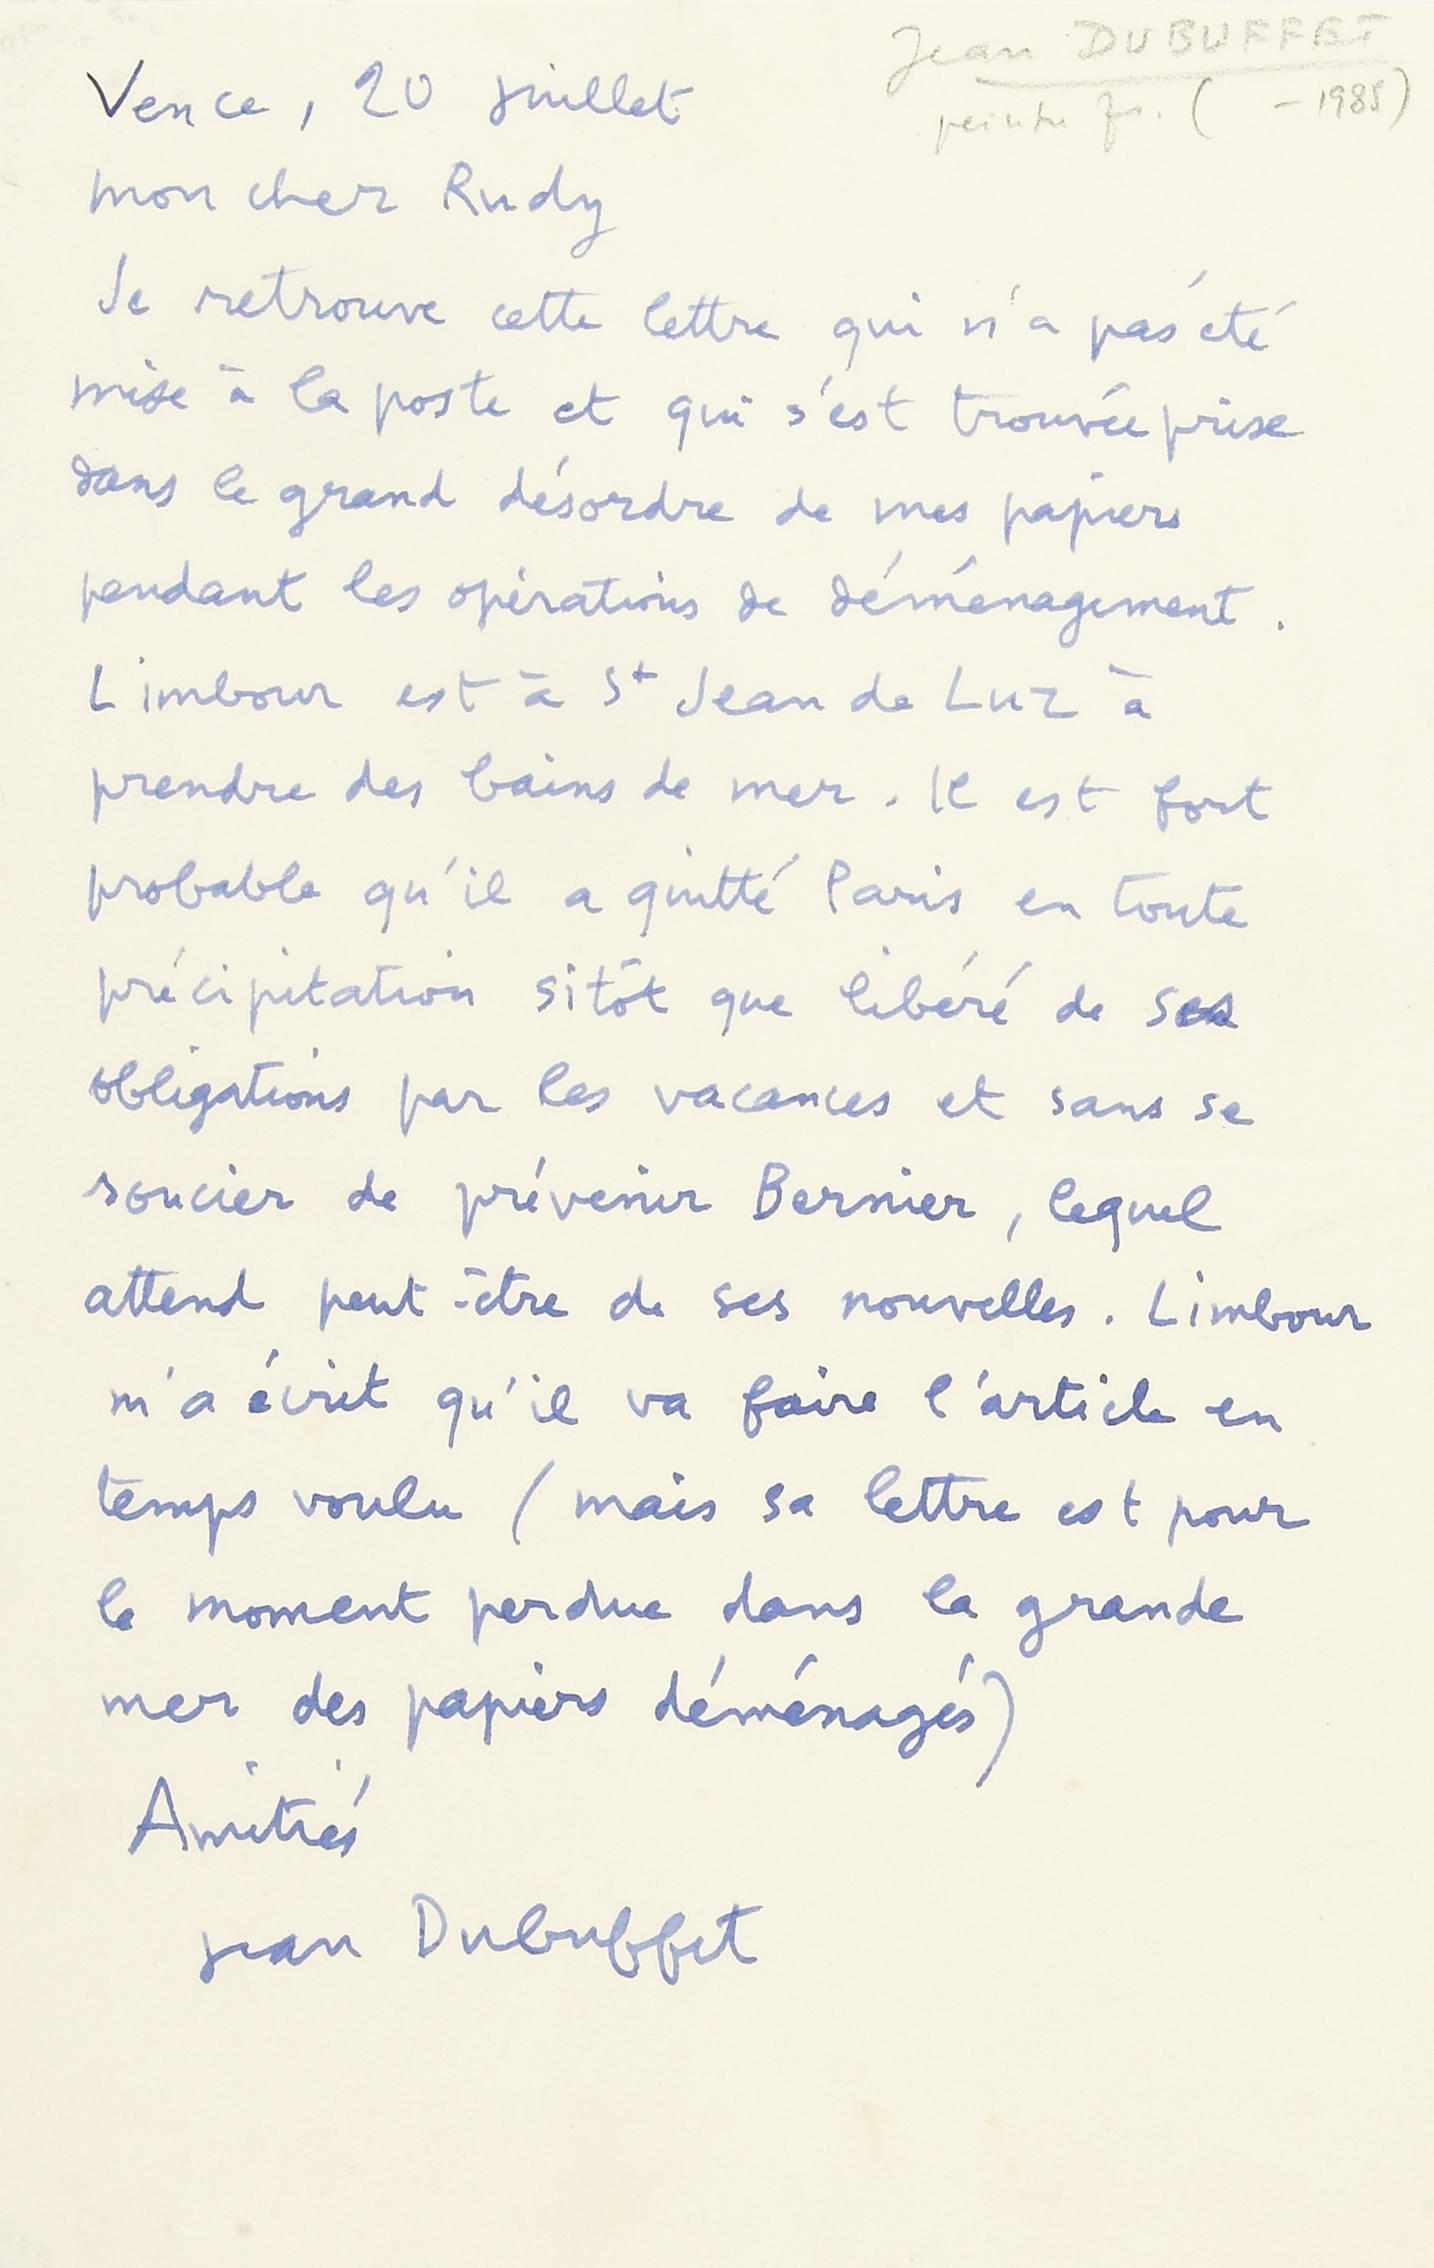 Jean DUBUFFET
peintre fr. ( - 1985)
Vence, 20 juillet
mon cher Rudy
Je retrouve cette lettre qui n'a pas été
mise à la poste et qui s'est trouvée prise
dans le grand désordre de mes papiers
pendant les opérations de déménagement.
Limbour est à St Jean de Luz à
prendre des bains de mer. Il est fort
probable qu'il a quitté Paris en toute
précipitation sitôt que libéré de ses
obligations par les vacances et sans se
soucier de prévenir Bernier, lequel
attend peut-être de ses nouvelles. Limbour
m'a écrit qu'il va faire l'article en
temps voulu (mais sa lettre est pour
le moment perdue dans la grande
mer des papiers déménagés)
Amitiés
Jean Dubuffet